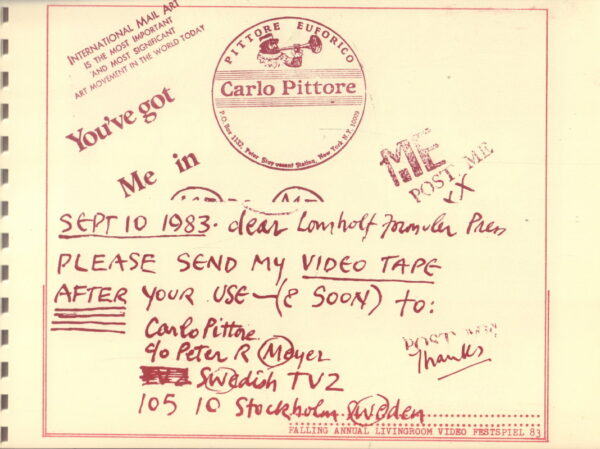 INTERNATIONAL MAIL ART
IS THE MOST IMPORTANT
AND MOST SIGNIFICANT
ART MOVEMENT IN THE WORLD TODAY
PITTORE EUFORICO
Carlo Pittore
P.O. Box 1132, Peter Stuyvesant Station, New York N.Y. 10009
You've got
Me in
ME
POST ME
SEPT 10 1983. dear Lomholt Formular Press
PLEASE SEND MY VIDEO TAPE
AFTER YOUR USE—(& SOON) to:
Carlo Pittore
c/o Peter R Meyer
Swedish TV2
105 10 Stockholm Sweden
POST ME
Thanks
FALLING ANNUAL LIVINGROOM VIDEO FESTSPIEL 83